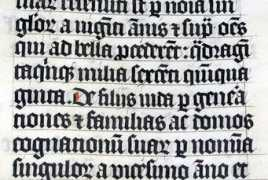 suar recensiti su̅t p no̅ia sin
glor a uigi̅ti a̅nis & sup̅ o̅e̅s
qui ad bella p̅cederent: q̅dragi̅
taq̅nq; milia sexce̅ti qui̅qua
ginta. De filijs iuda p gene̅a
tiones & familias ac domos
cognationu̅ suar p nomi̅a
singulor a uicesimo a̅no et